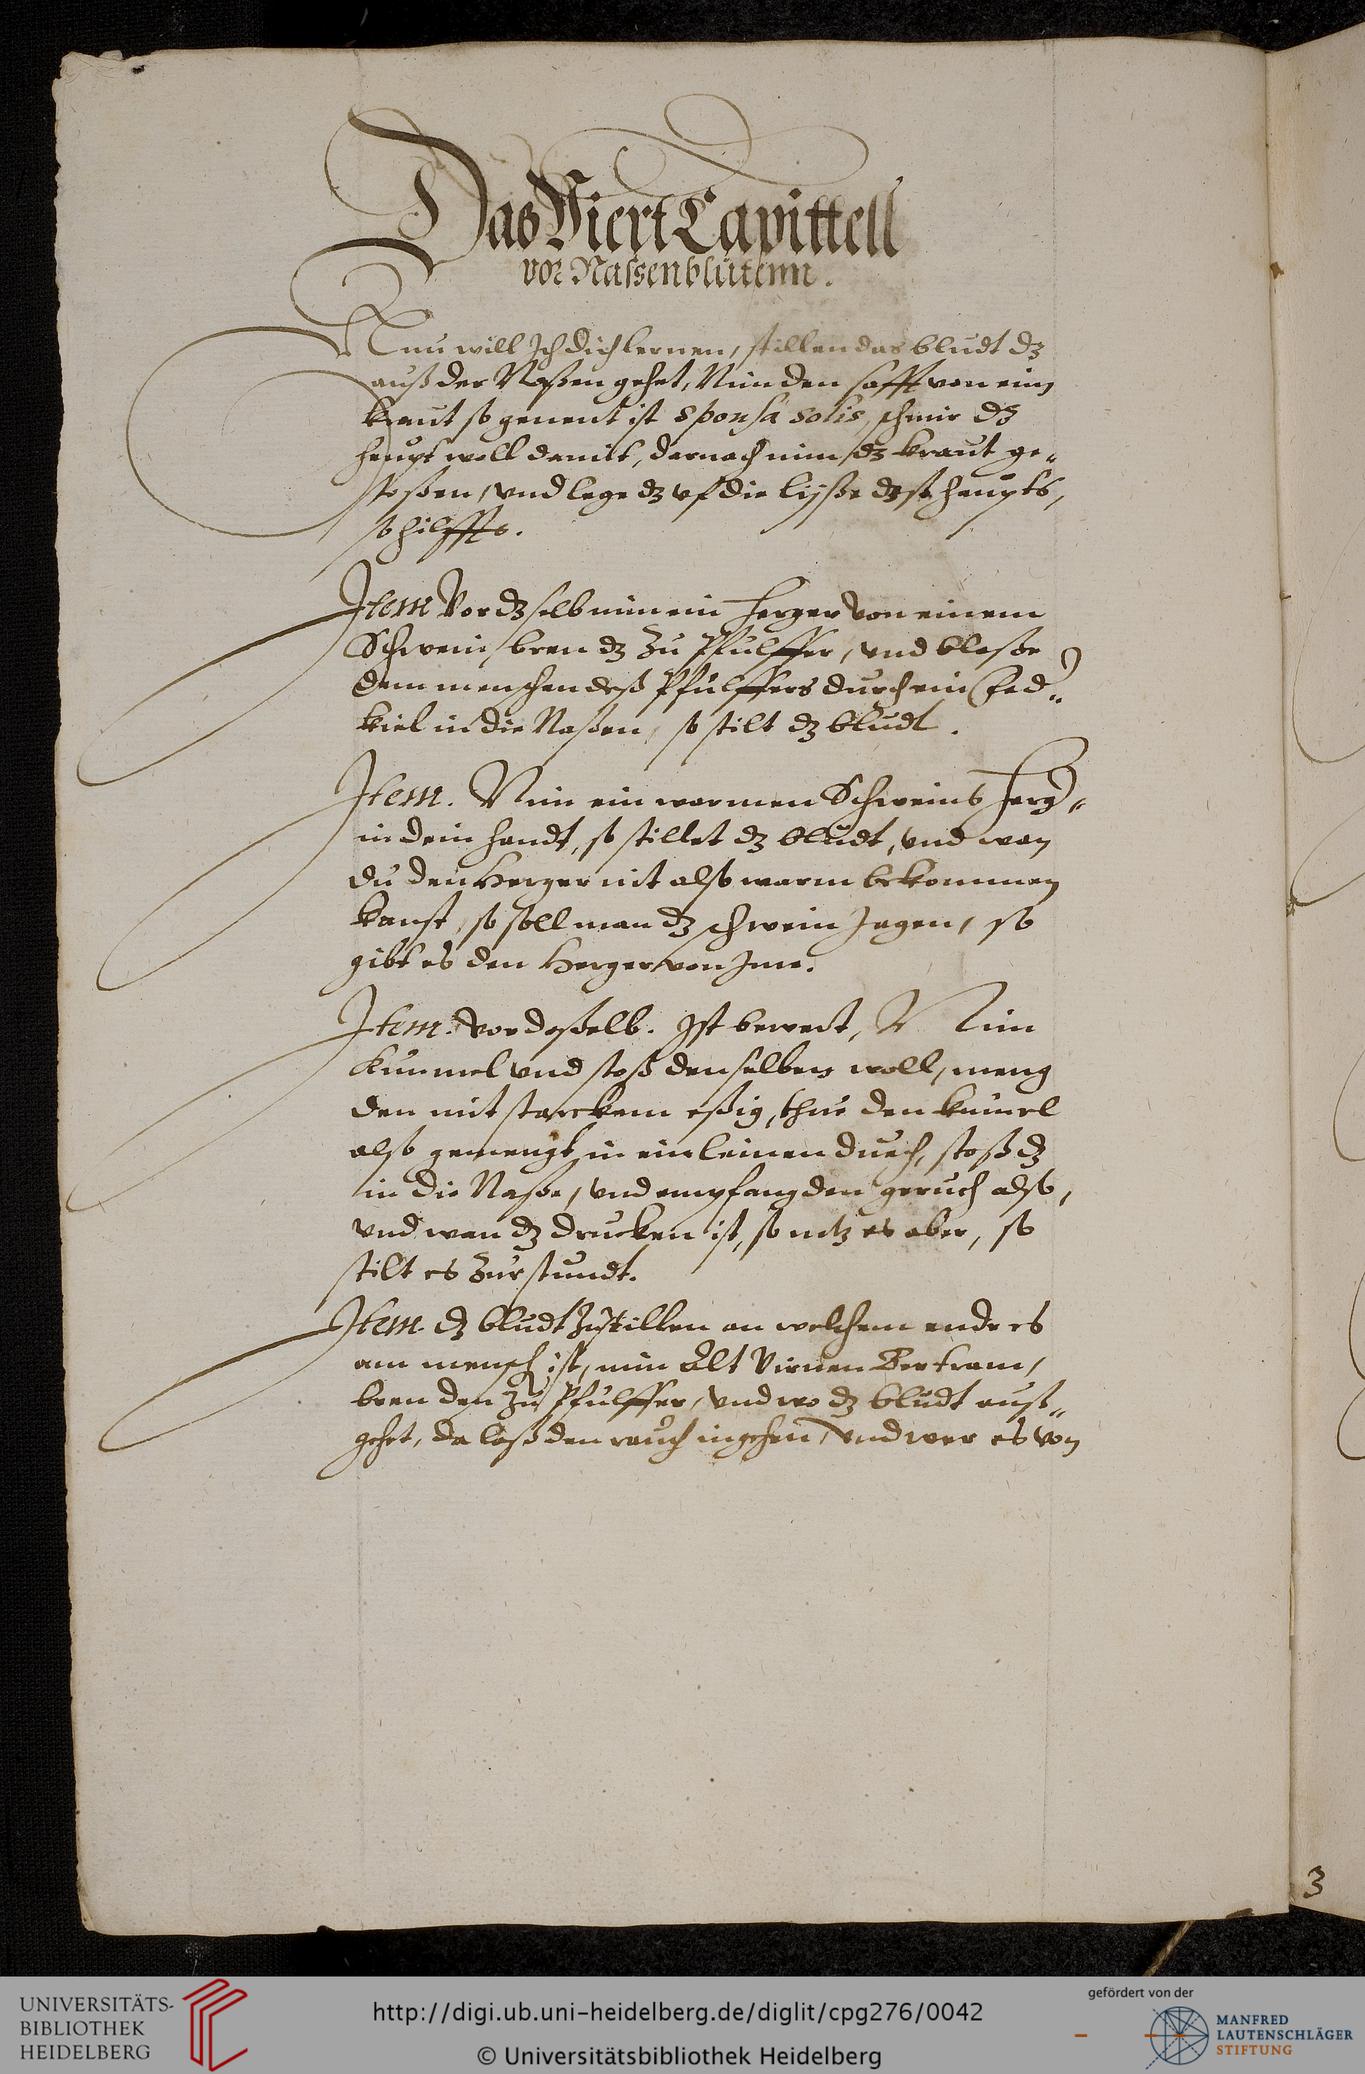 Das Viert Capittell
vor Nassenblütenn.
Nun will Ich dich lernen, stillen das bludt dz
auß der Naßen gehet, Nim den safft von eim
kraut so genent ist sponsa solis, schmir dz
haupt woll damit, darnach nim dz kraut ge„
stoßen, vnd lege dz vf die deß haupts,
so hilffts.
Item Vor dz selb nim ein von einem
Schwein, bren dz zu Pfulffer, vnd bloße
dem menschen deß Pfulffers durch ein Fed„
kiel in die Naßen, so stilt dz bludt.
Item. Nim ein warmen Schweins
in dein handt, so stillet dz bludt, vnd wan
du den nit also warm bekommen
kanst, so soll man dz schwein Jagen, so
gibt es den von Jme.
Item. vor daßelb. Ist bewert, Nim
Kummel vnd stoß denselben woll, meng
den mit starckem eßig, thue den kumel
also gemengt in ein leinen duch, stoß dz
in die Naße, vnd empfang den geruch also,
vnd wan dz drucken ist, so netz es aber, so
stilt es zur stundt.
Item dz bludt zustillen an welchem ende es
am mensch ist, nim Alt Virnen Bertram,
bren den zu Pfulffer, vnd wo dz bludt auß„
gehet, da laß den rauch ingehen, vnd wer es von
3
UNIVERSITÄTS-
BIBLIOTHEK
HEIDELBERG
http://digi.ub.uni-heidelberg.de/diglit/cpg276/0042
© Universitätsbibliothek Heidelberg
gefördert von der
MANFRED
LAUTENSCHLÄGER
STIFTUNG